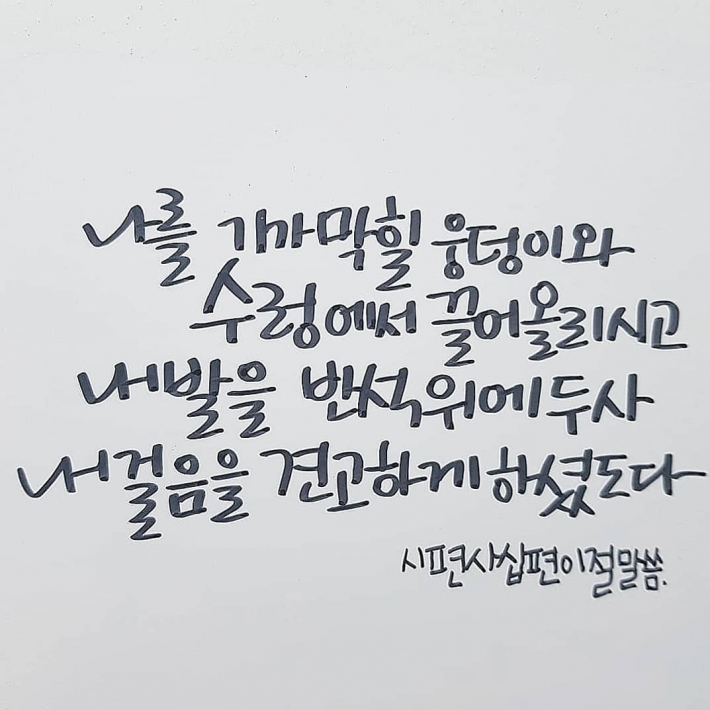 나를 기가 막힐 웅덩이와
수렁에서 끌어올리시고
내 발을 반석 위에 두사
내 걸음을 견고하게 하셨도다
시편 사십편 이절 말씀.